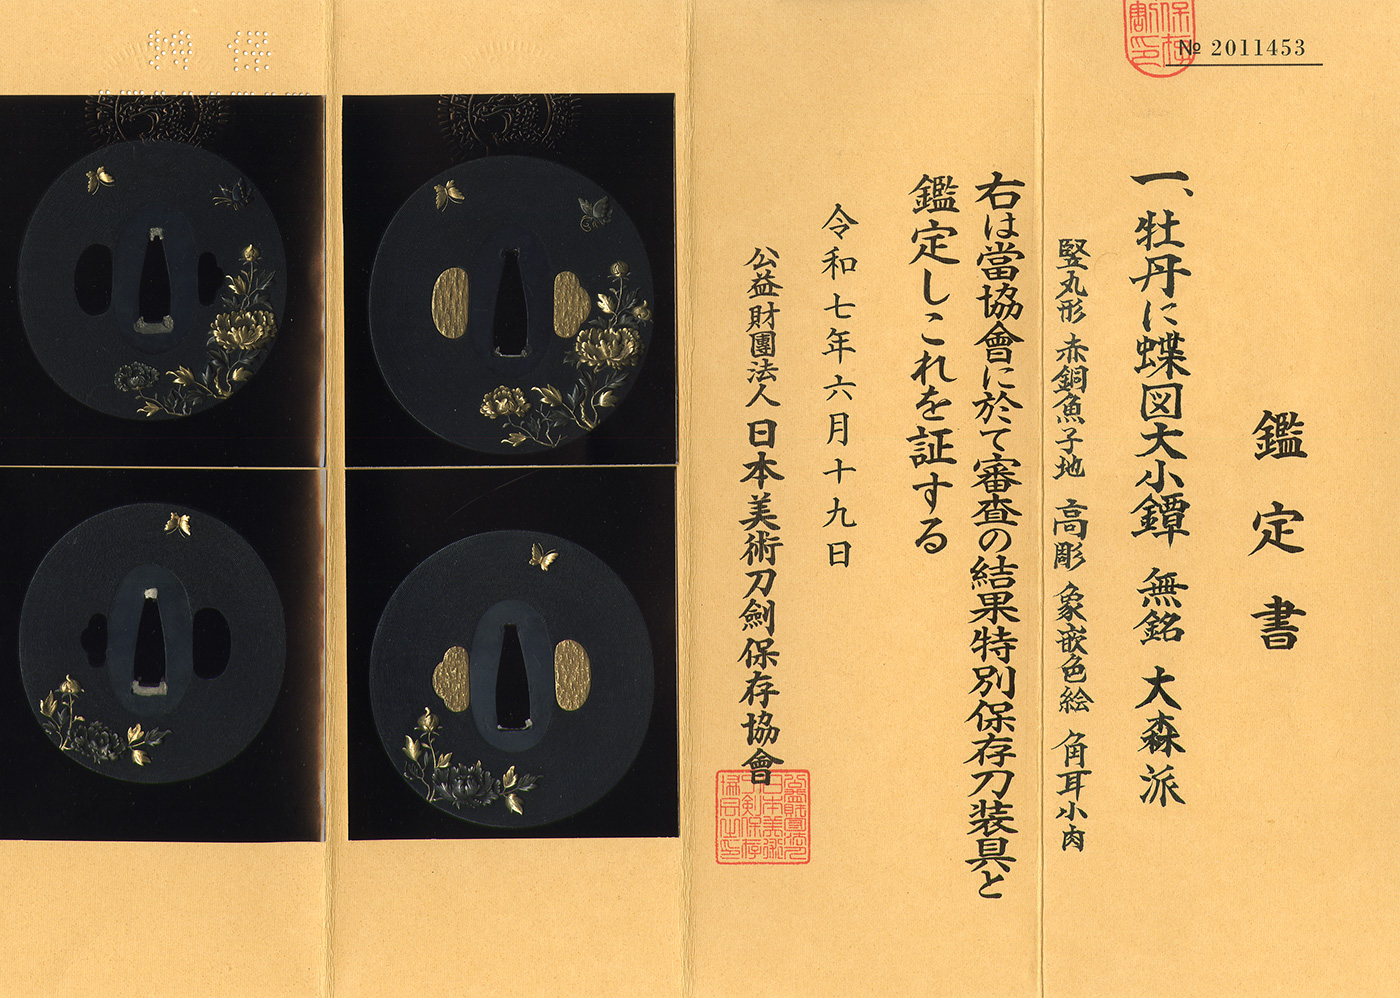 № 2011453
鑑定書
一、牡丹に蝶図大小鐔 無銘 大森派
竪丸形 赤銅魚子地 高彫 象嵌色絵 角耳小肉
右は當協會に於て審査の結果特別保存刀装具と
鑑定しこれを証する
令和七年六月十九日
公益財團法人 日本美術刀劍保存協會